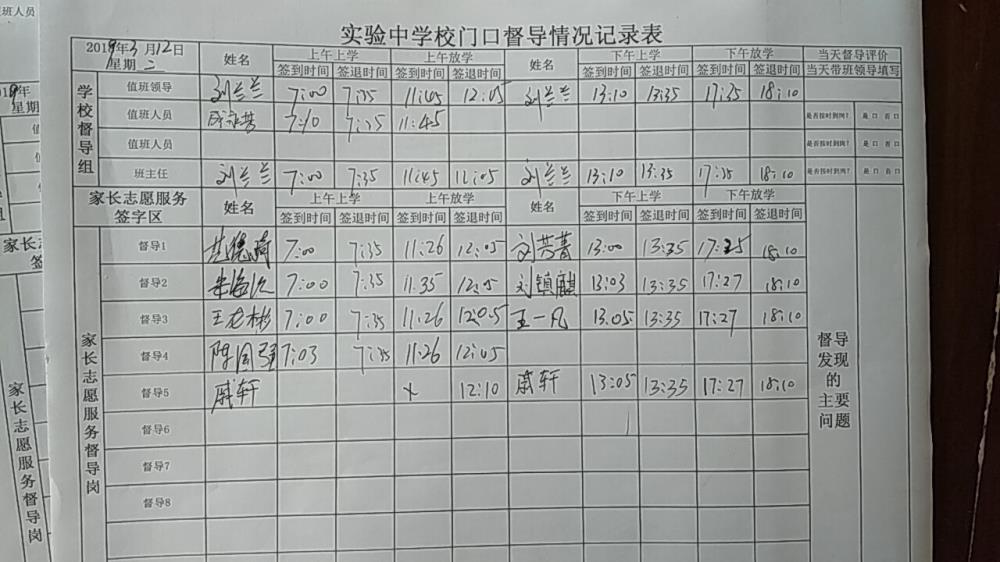 实验中学校门口督导情况记录表
2019年3月12日
星期二
姓名 上午上学 上午放学 姓名 下午上学 下午放学 当天督导评价
签到时间 签退时间 签到时间 签退时间 签到时间 签退时间 签到时间 签退时间 当天带班领导填写
学校督导组
值班领导 刘兰兰 7:00 7:35 11:45 12:05 刘兰兰 13:10 13:35 17:35 18:10
值班人员 7:10 7:35 11:45 是否按时到岗? 是口 否口
值班人员 是否按时到岗? 是口 否口
班主任 刘兰兰 7:00 7:35 11:45 12:05 刘兰兰 13:10 13:35 17:35 18:10 是否按时到岗? 是口 否口
家长志愿服务
签字区
姓名 上午上学 上午放学 姓名 下午上学 下午放学
签到时间 签退时间 签到时间 签退时间 签到时间 签退时间 签到时间 签退时间
家长志愿服务督导岗
督导1 7:00 7:35 11:26 12:05 刘芳菁 13:00 13:35 17:25 18:10
督导2 7:00 7:35 11:35 12:05 刘镇麒 13:03 13:35 17:27 18:10
督导3 王龙彬 7:00 7:35 11:26 12:05 王一凡 13:05 13:35 17:27 18:10
督导4 陈国强 7:03 7:35 11:26 12:05
督导5 戚轩 x 12:10 戚轩 13:05 13:35 17:27 18:10
督导6
督导7
督导8
督导
发现
的
主要
问题
值班人员
星期
家长志愿服务督导岗